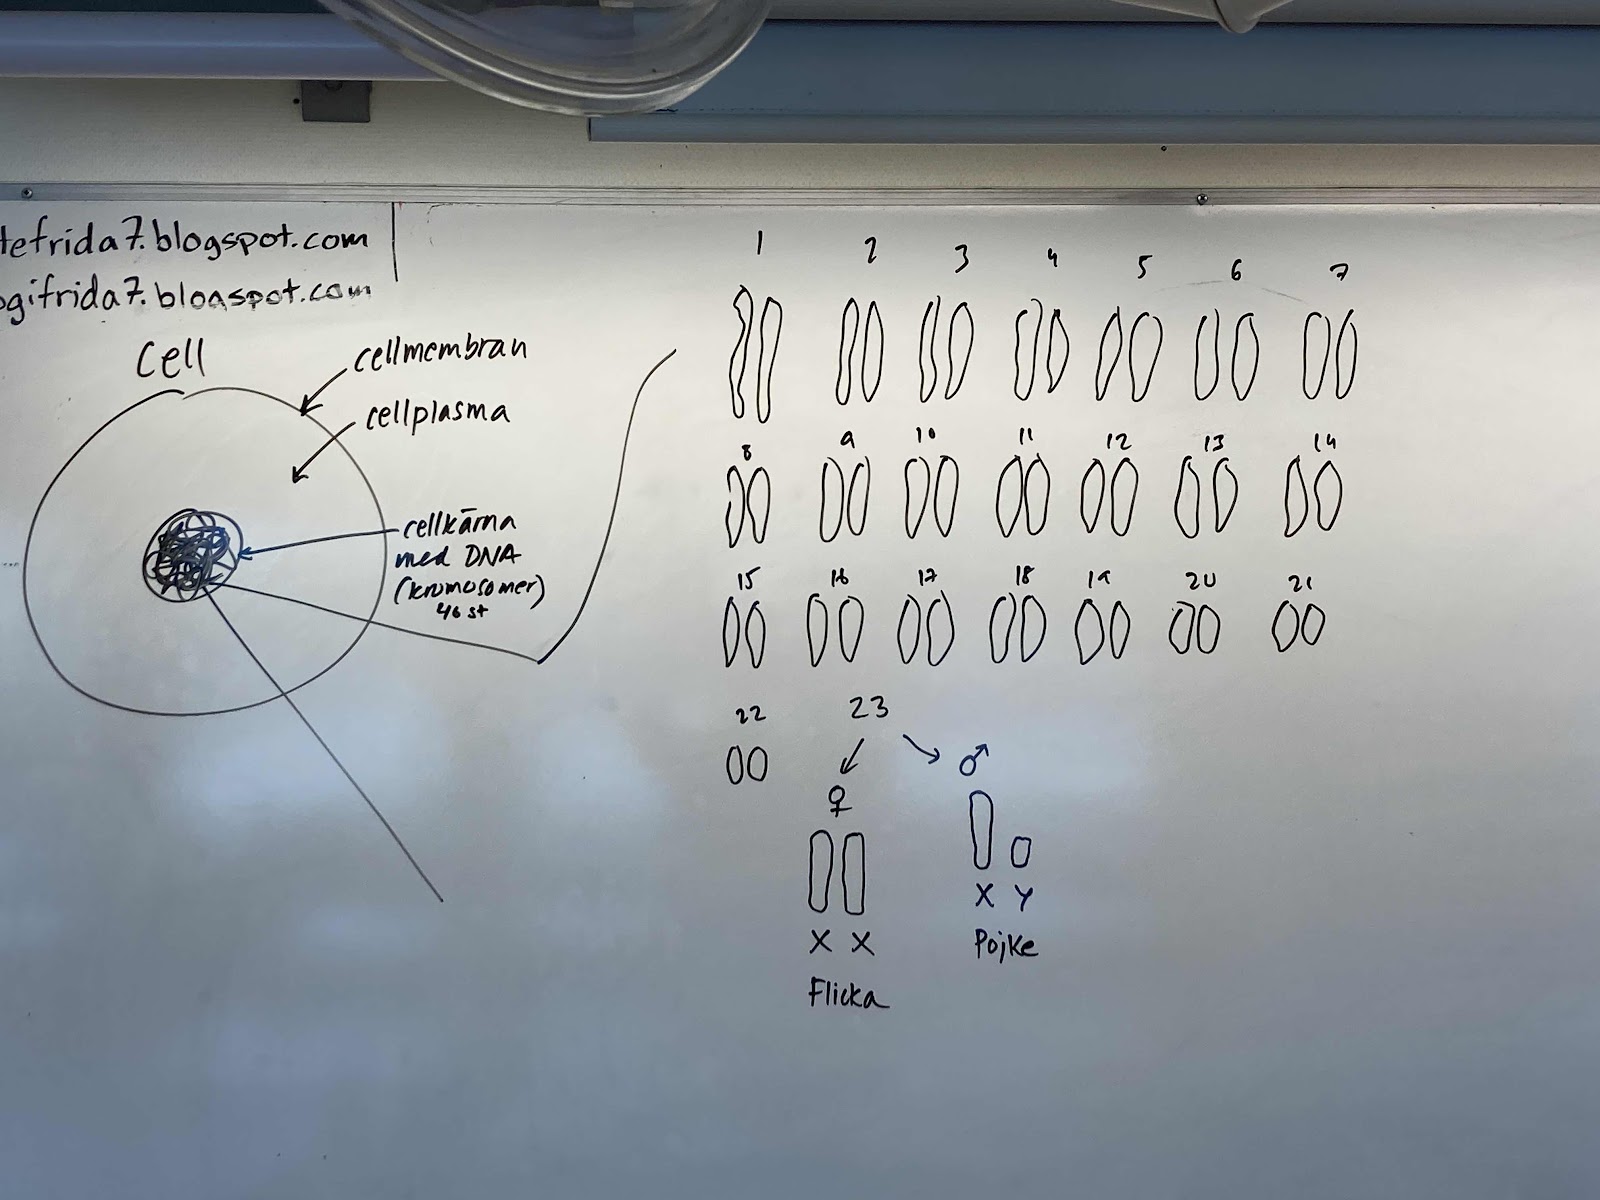 tefrida7.blogspot.com
ogifrida7.blogspot.com
Cell
cellmembran
cellplasma
cellkärna
med DNA
(kromosomer)
46 st
1 2 3 4 5 6 7
8 9 10 11 12 13 14
15 16 17 18 19 20 21
22 23
♀ ♂
X X
Flicka
X Y
Pojke